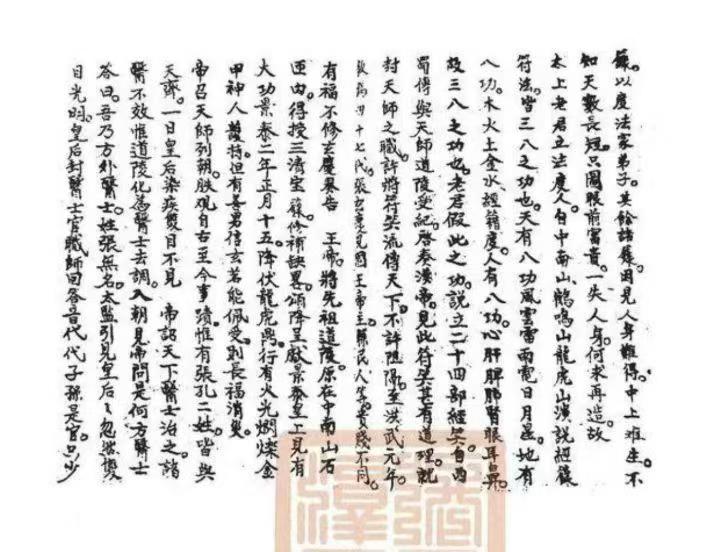 籙。以度法家弟子。其餘諸籙。因見人身難得。中土难生。不
知天數長短。只圖眼前富貴。一失人身。何求再造。故
太上老君立法度人。自中南山、鶴鳴山、龍虎山演說經籙
符法。皆三八之功也。天有八功。風雲雷雨電日月星。地有
八功。木火土金水、經籍度。人有八功。心肝脾肺腎眼耳鼻。
故三八之功也。老君假此之功。説立二十四部經笑。自西
蜀傳與天師道陵受紀。啓奏漢帝。見此符笑。甚有道理。就
封天師之職。許將符笑流傳天下。不許隱瞞。至洪武元年。
張為四十七代。張玄慶見國王帝主縣民人等貴賤不同。
有福不修玄慶奏告 王帝。將先祖道陵。原在中南山石
匣内。得授三清宝籙。修補缺畧。頒降呈獻景泰皇上見有
大功。景泰二年正月十五。降伏龍虎。與行有火光燗燦金
甲神人護持。但有善男信玄若能佩受。則長福消災。
帝召天師列朝。朕观自古至今事蹟。惟有張孔二姓。皆與
天齊。一日皇后染疾。雙目不見 帝詔天下醫士治之。諸
醫不效。惟道陵化為醫士去調。入朝見帝問是何方醫士
答曰。吾乃方外醫士。姓張無名。太監引見皇后。〻忽然雙
目光明。皇后封醫士官職。師回答音代代子孫是官。只少